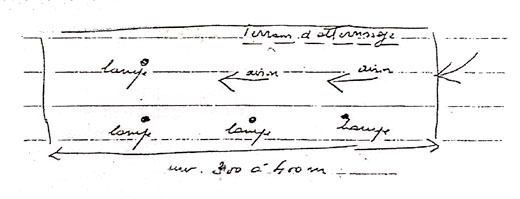 Terrain d'atterrissage
lampe avion avion
lampe lampe lampe
env. 300 à 400 m